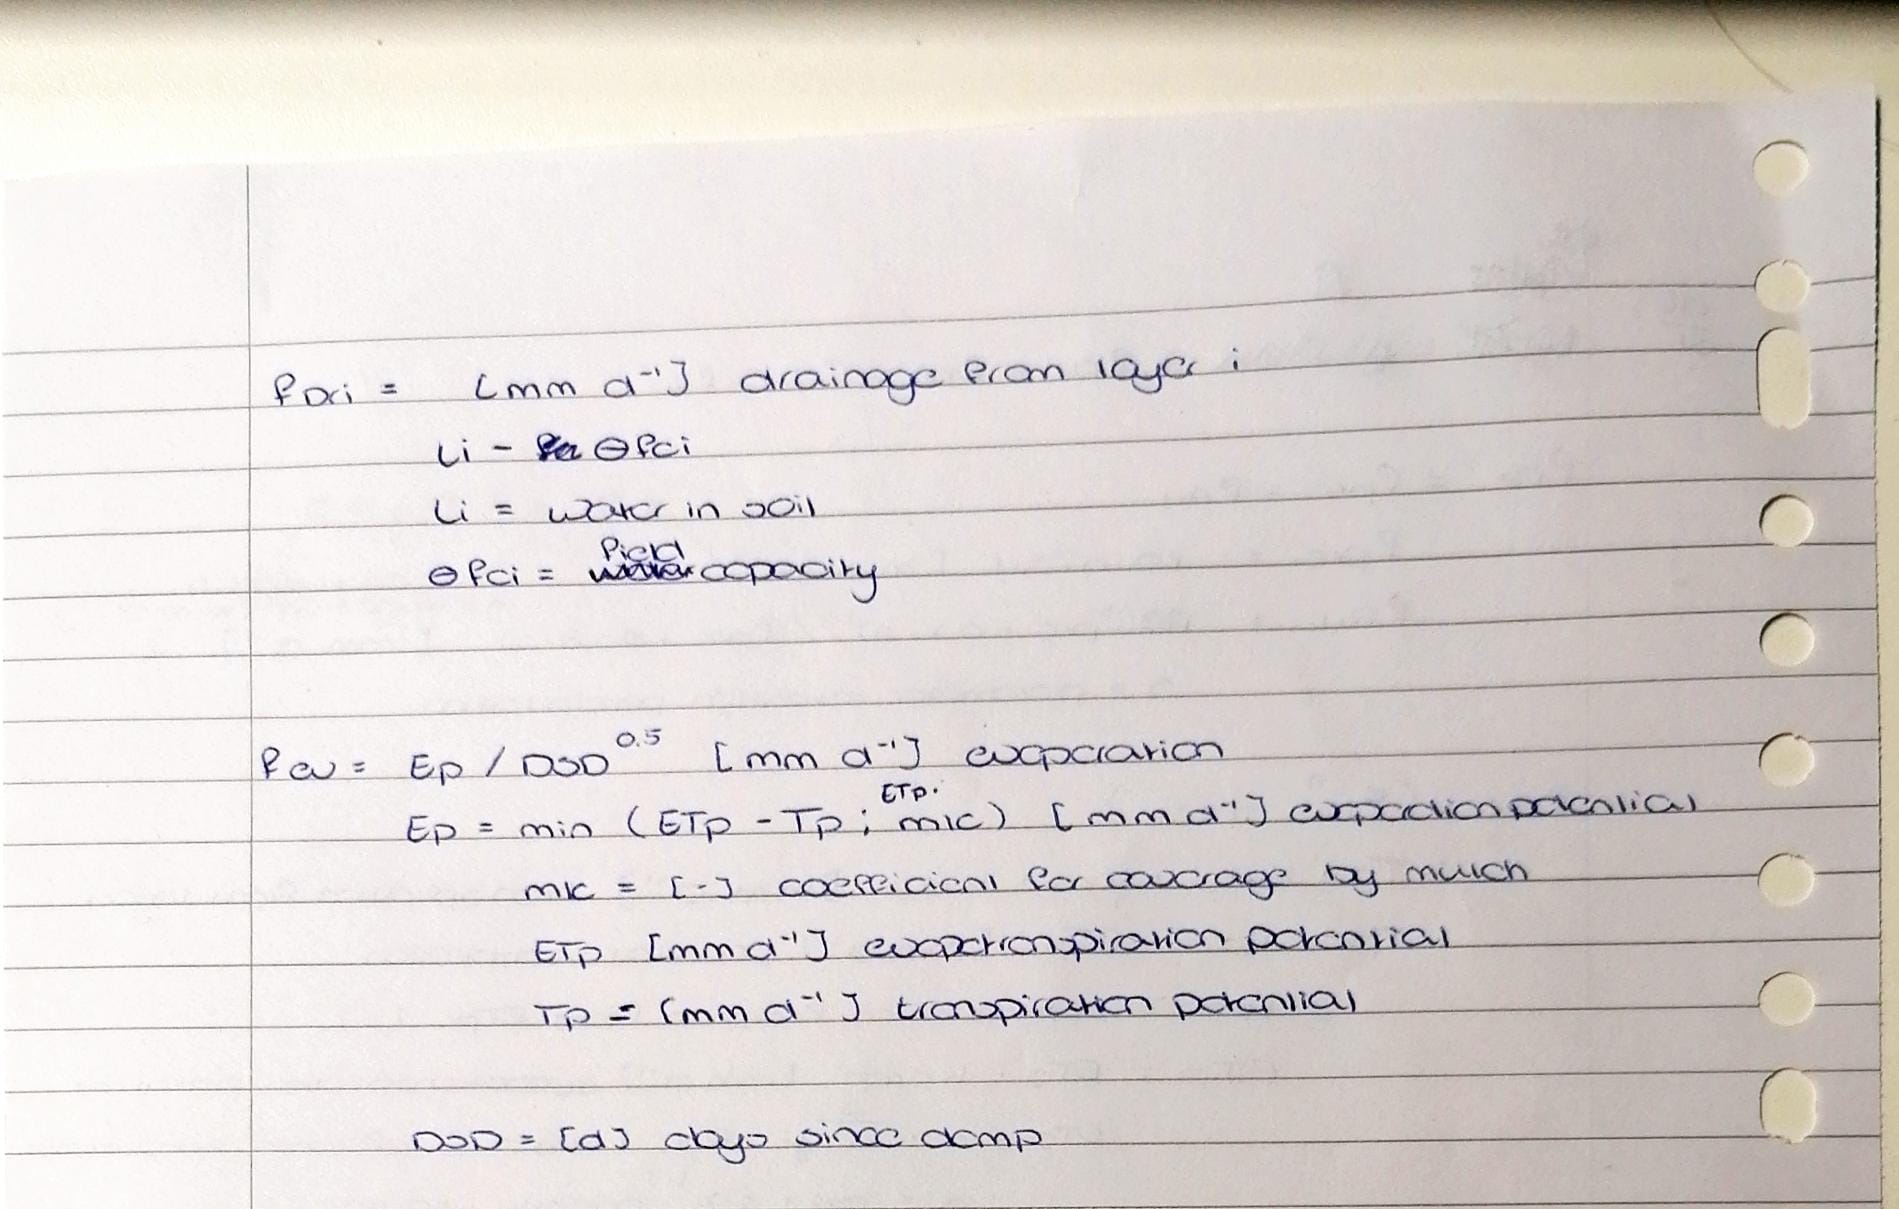 fDri = [mm d⁻¹] drainage from layer i
Li - θfci
Li = water in soil
θfci = field capacity
fev = Ep / DSD^0.5 [mm d⁻¹] evaporation
Ep = min (ETp - Tp ; ETp. mlc) [mm d⁻¹] evaporation potential
mlc = [-] coefficient for coverage by mulch
ETp [mm d⁻¹] evapotranspiration potential
Tp = [mm d⁻¹] transpiration potential
DSD = [d] days since damp